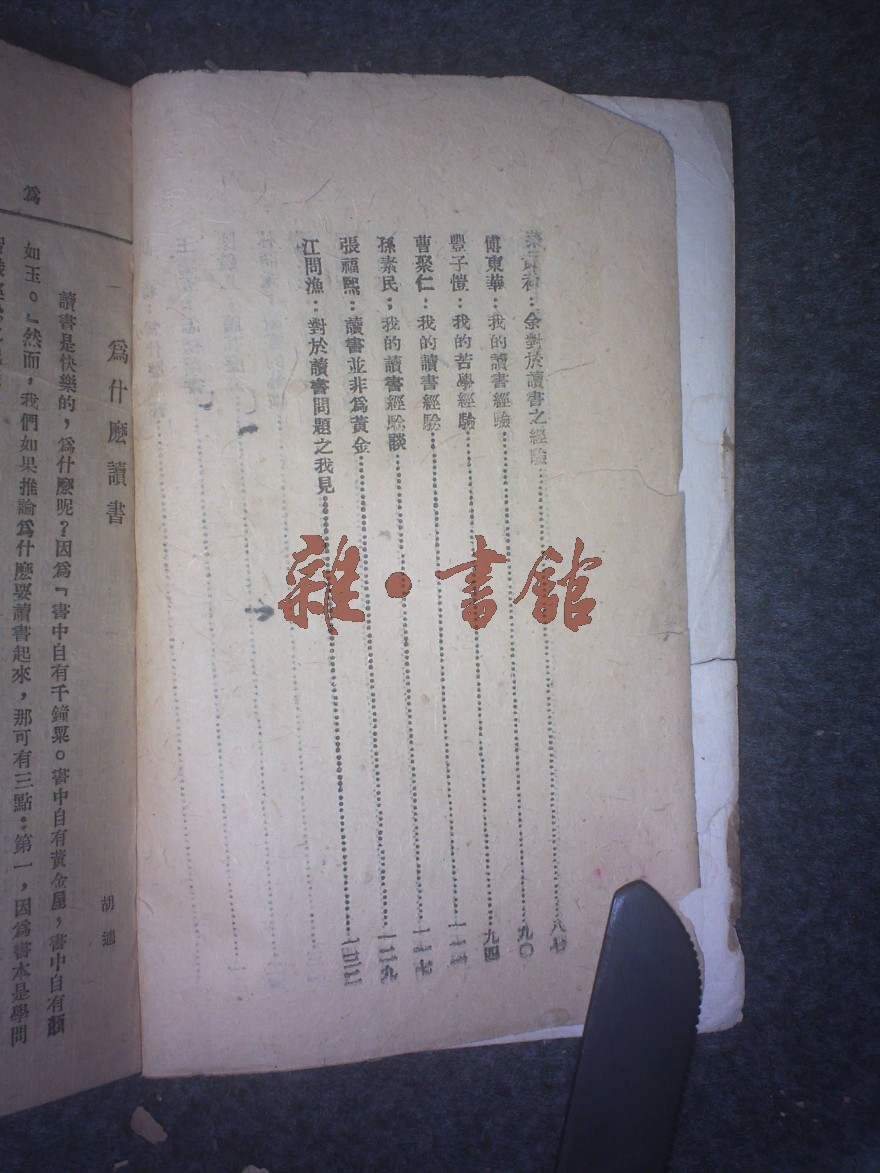 余對於讀書之經驗……八七
傅東華：我的讀書經驗……九〇
豐子愷：我的苦學經驗……九四
曹聚仁：我的讀書經驗……
孫素民；我的讀書經驗談……
張福熙：讀書並非爲黃金……一二九
江問漁：對於讀書問題之我見……
雜·書館
爲
一 爲什麽讀書
胡適
讀書是快樂的，爲什麽呢？因爲「書中自有千鐘粟。書中自有黃金屋，書中自有顏
如玉。」然而，我們如果推論爲什麽要讀書起來，那可有三點：第一，因爲書本是學問